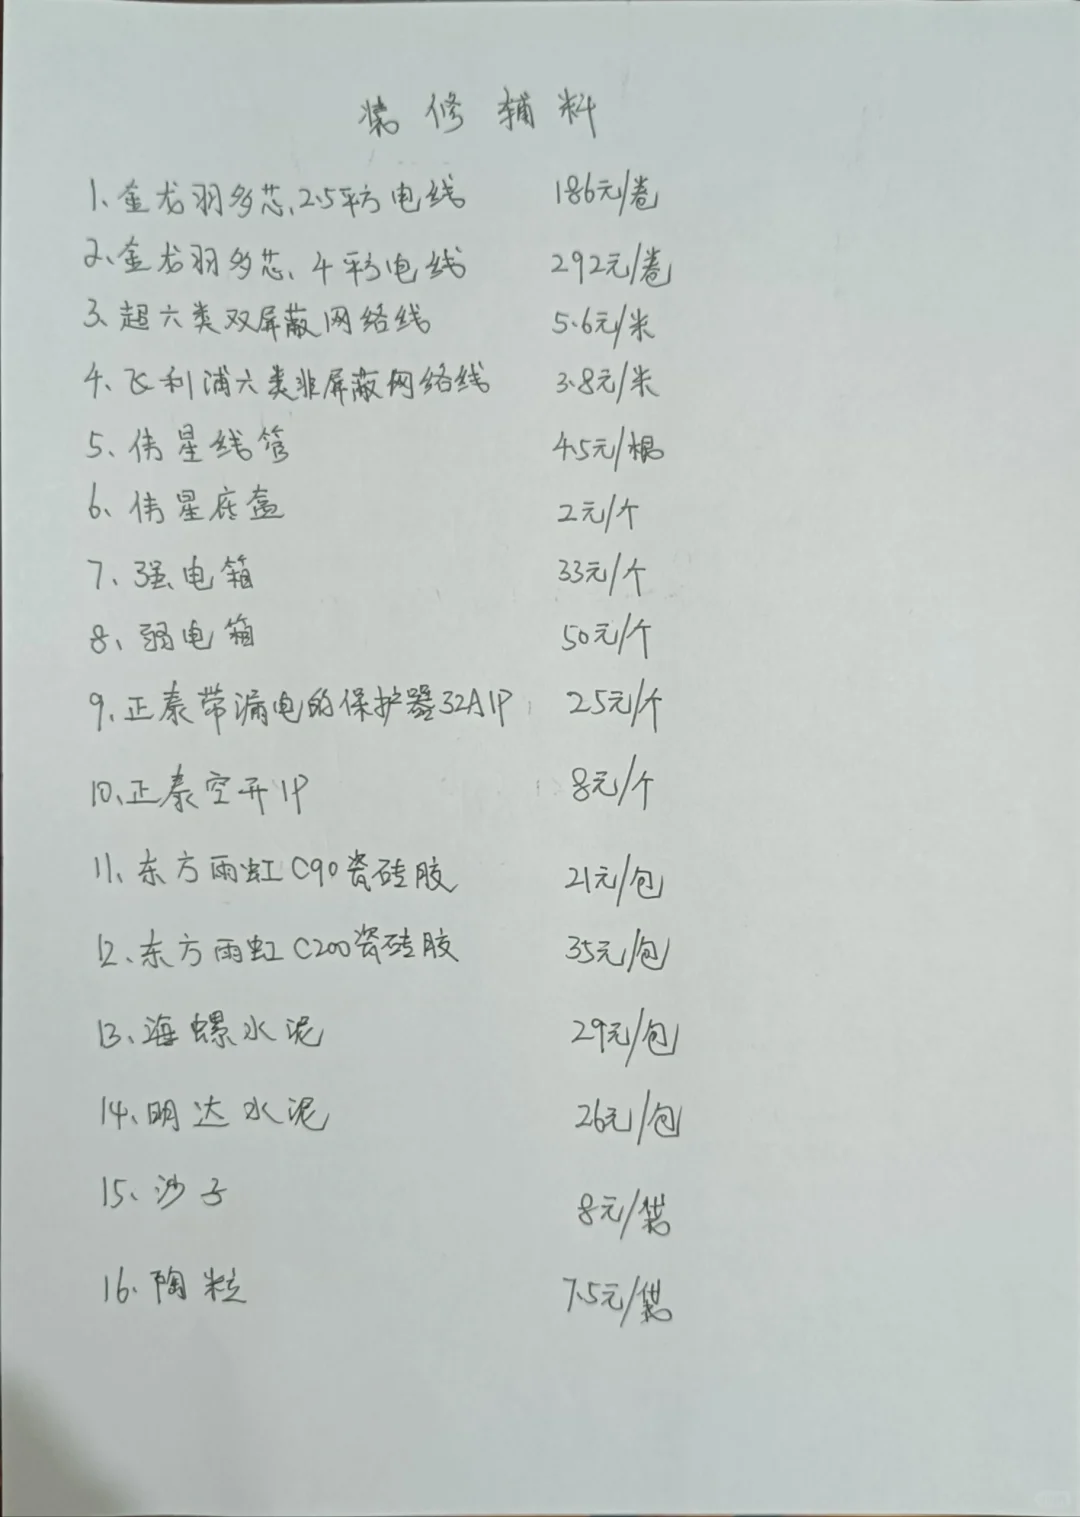 装修辅料
1、金龙羽多芯、2.5平方电线 186元/卷
2、金龙羽多芯、4平方电线 292元/卷
3、超六类双屏蔽网络线 5.6元/米
4、飞利浦六类非屏蔽网络线 3.8元/米
5、伟星线管 4.5元/根
6、伟星底盒 2元/个
7、强电箱 33元/个
8、弱电箱 50元/个
9、正泰带漏电的保护器32A1P 25元/个
10、正泰空开1P 8元/个
11、东方雨虹C90瓷砖胶 21元/包
12、东方雨虹C200瓷砖胶 35元/包
13、海螺水泥 29元/包
14、明达水泥 26元/包
15、沙子 8元/袋
16、陶粒 7.5元/袋